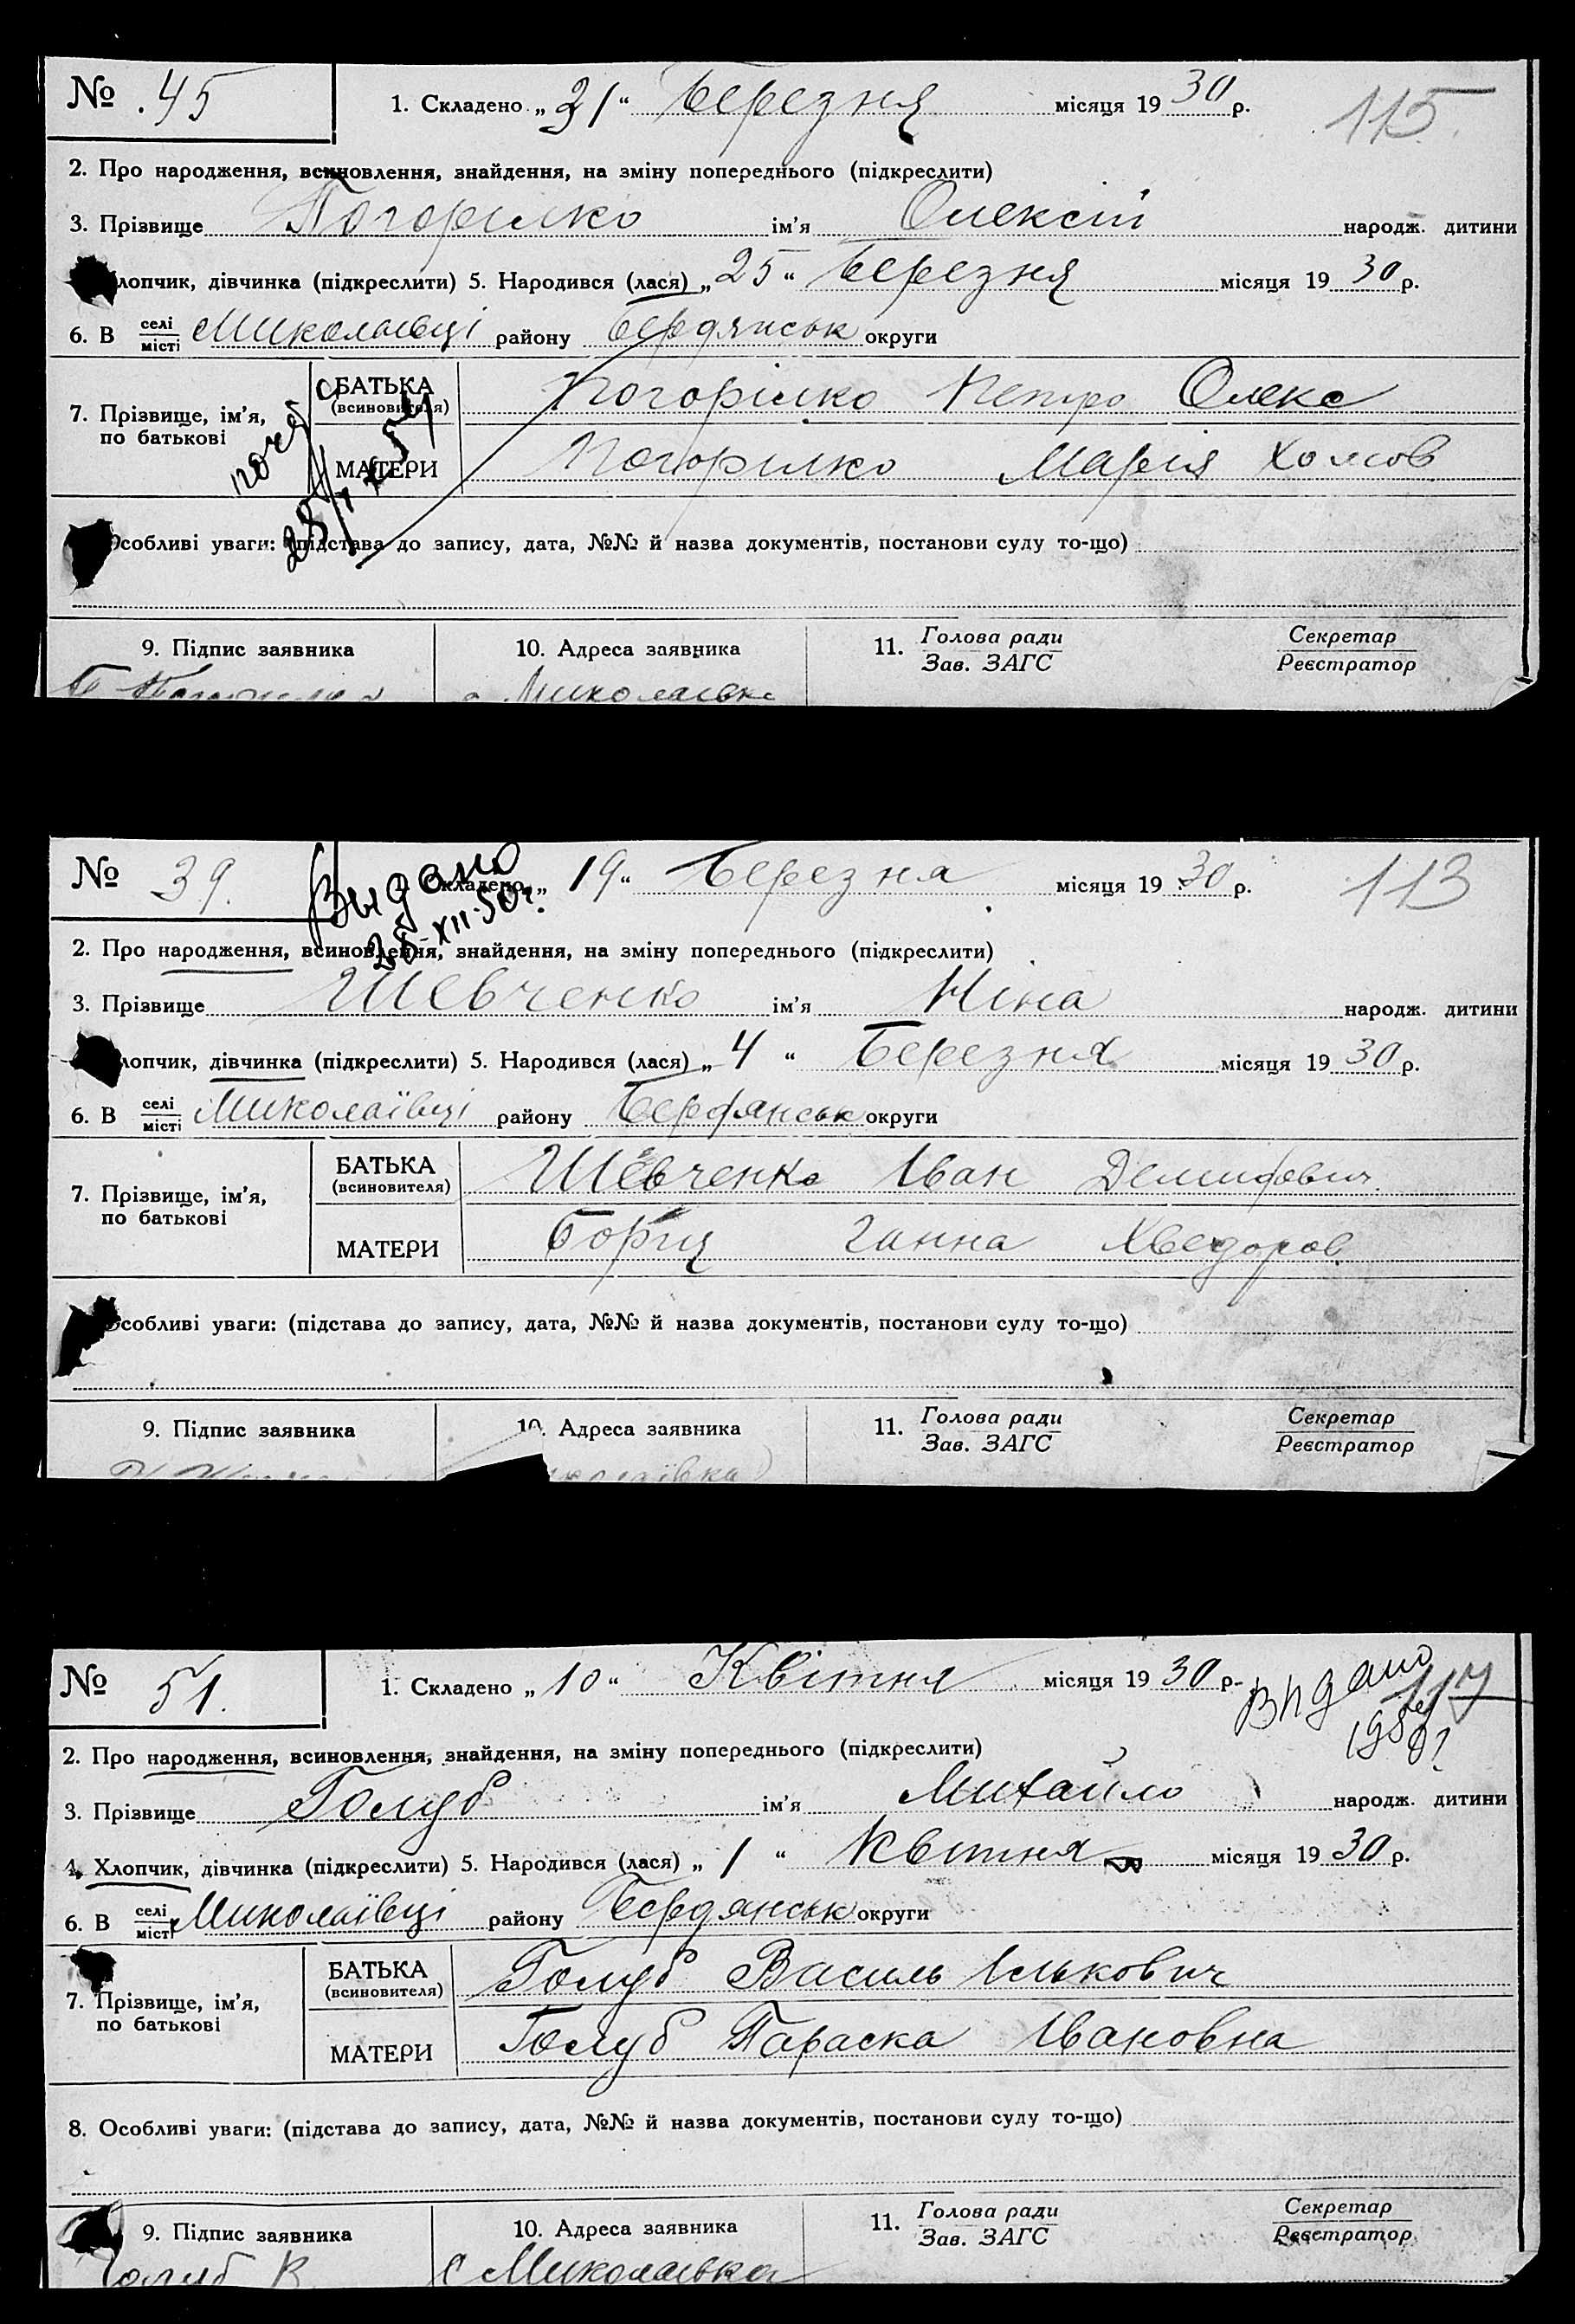 № 45
1. Складено „31“ Березня місяця 1930 р.
115.
2. Про народження, всиновлення, знайдення, на зміну попереднього (підкреслити)
3. Прізвище Погорилко ім'я Олексій народж. дитини
лопчик, дівчинка (підкреслити) 5. Народився (лася) „25“ Березня місяця 1930 р.
6. В селі місті Миколаївці району Бердянськ округи
7. Прізвище, ім'я, по батькові
БАТЬКА (всиновителя) Погорілко Петро Олекс
МАТЕРИ Погорилко Марія Хомов
собливі уваги: (підстава до запису, дата, №№ й назва документів, постанови суду то-що)
9. Підпис заявника
10. Адреса заявника
11. Голова ради Зав. ЗАГС
Секретар Реєстратор
Миколаївка
№ 39.
Выдано 25-XII-50г.
Складено „19“ Березня місяця 1930 р.
113
2. Про народження, всиновлення, знайдення, на зміну попереднього (підкреслити)
3. Прізвище Шевченко ім'я Ніна народж. дитини
лопчик, дівчинка (підкреслити) 5. Народився (лася) „4“ Березня місяця 1930 р.
6. В селі місті Миколаївці району Бердянськ округи
7. Прізвище, ім'я, по батькові
БАТЬКА (всиновителя) Шевченко Іван Демидович
МАТЕРИ Борщ Ганна Хведоров
собливі уваги: (підстава до запису, дата, №№ й назва документів, постанови суду то-що)
9. Підпис заявника
10. Адреса заявника
11. Голова ради Зав. ЗАГС
Секретар Реєстратор
№ 51.
1. Складено „10“ Квітня місяця 1930 р.
117
Видано
2. Про народження, всиновлення, знайдення, на зміну попереднього (підкреслити)
3. Прізвище Голуб ім'я Михайло народж. дитини
4. Хлопчик, дівчинка (підкреслити) 5. Народився (лася) „1“ Квітня місяця 1930 р.
6. В селі місті Миколаївці району Бердянськ округи
7. Прізвище, ім'я, по батькові
БАТЬКА (всиновителя) Голуб Василь Ількович
МАТЕРИ Голуб Параска Івановна
8. Особливі уваги: (підстава до запису, дата, №№ й назва документів, постанови суду то-що)
9. Підпис заявника
10. Адреса заявника
11. Голова ради Зав. ЗАГС
Секретар Реєстратор
Голуб В
с Миколаївка